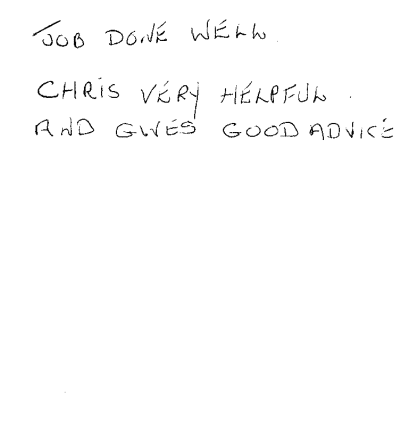 JOB DONE WELL
CHRIS VERY HELPFUL.
AND GIVES GOOD ADVICE